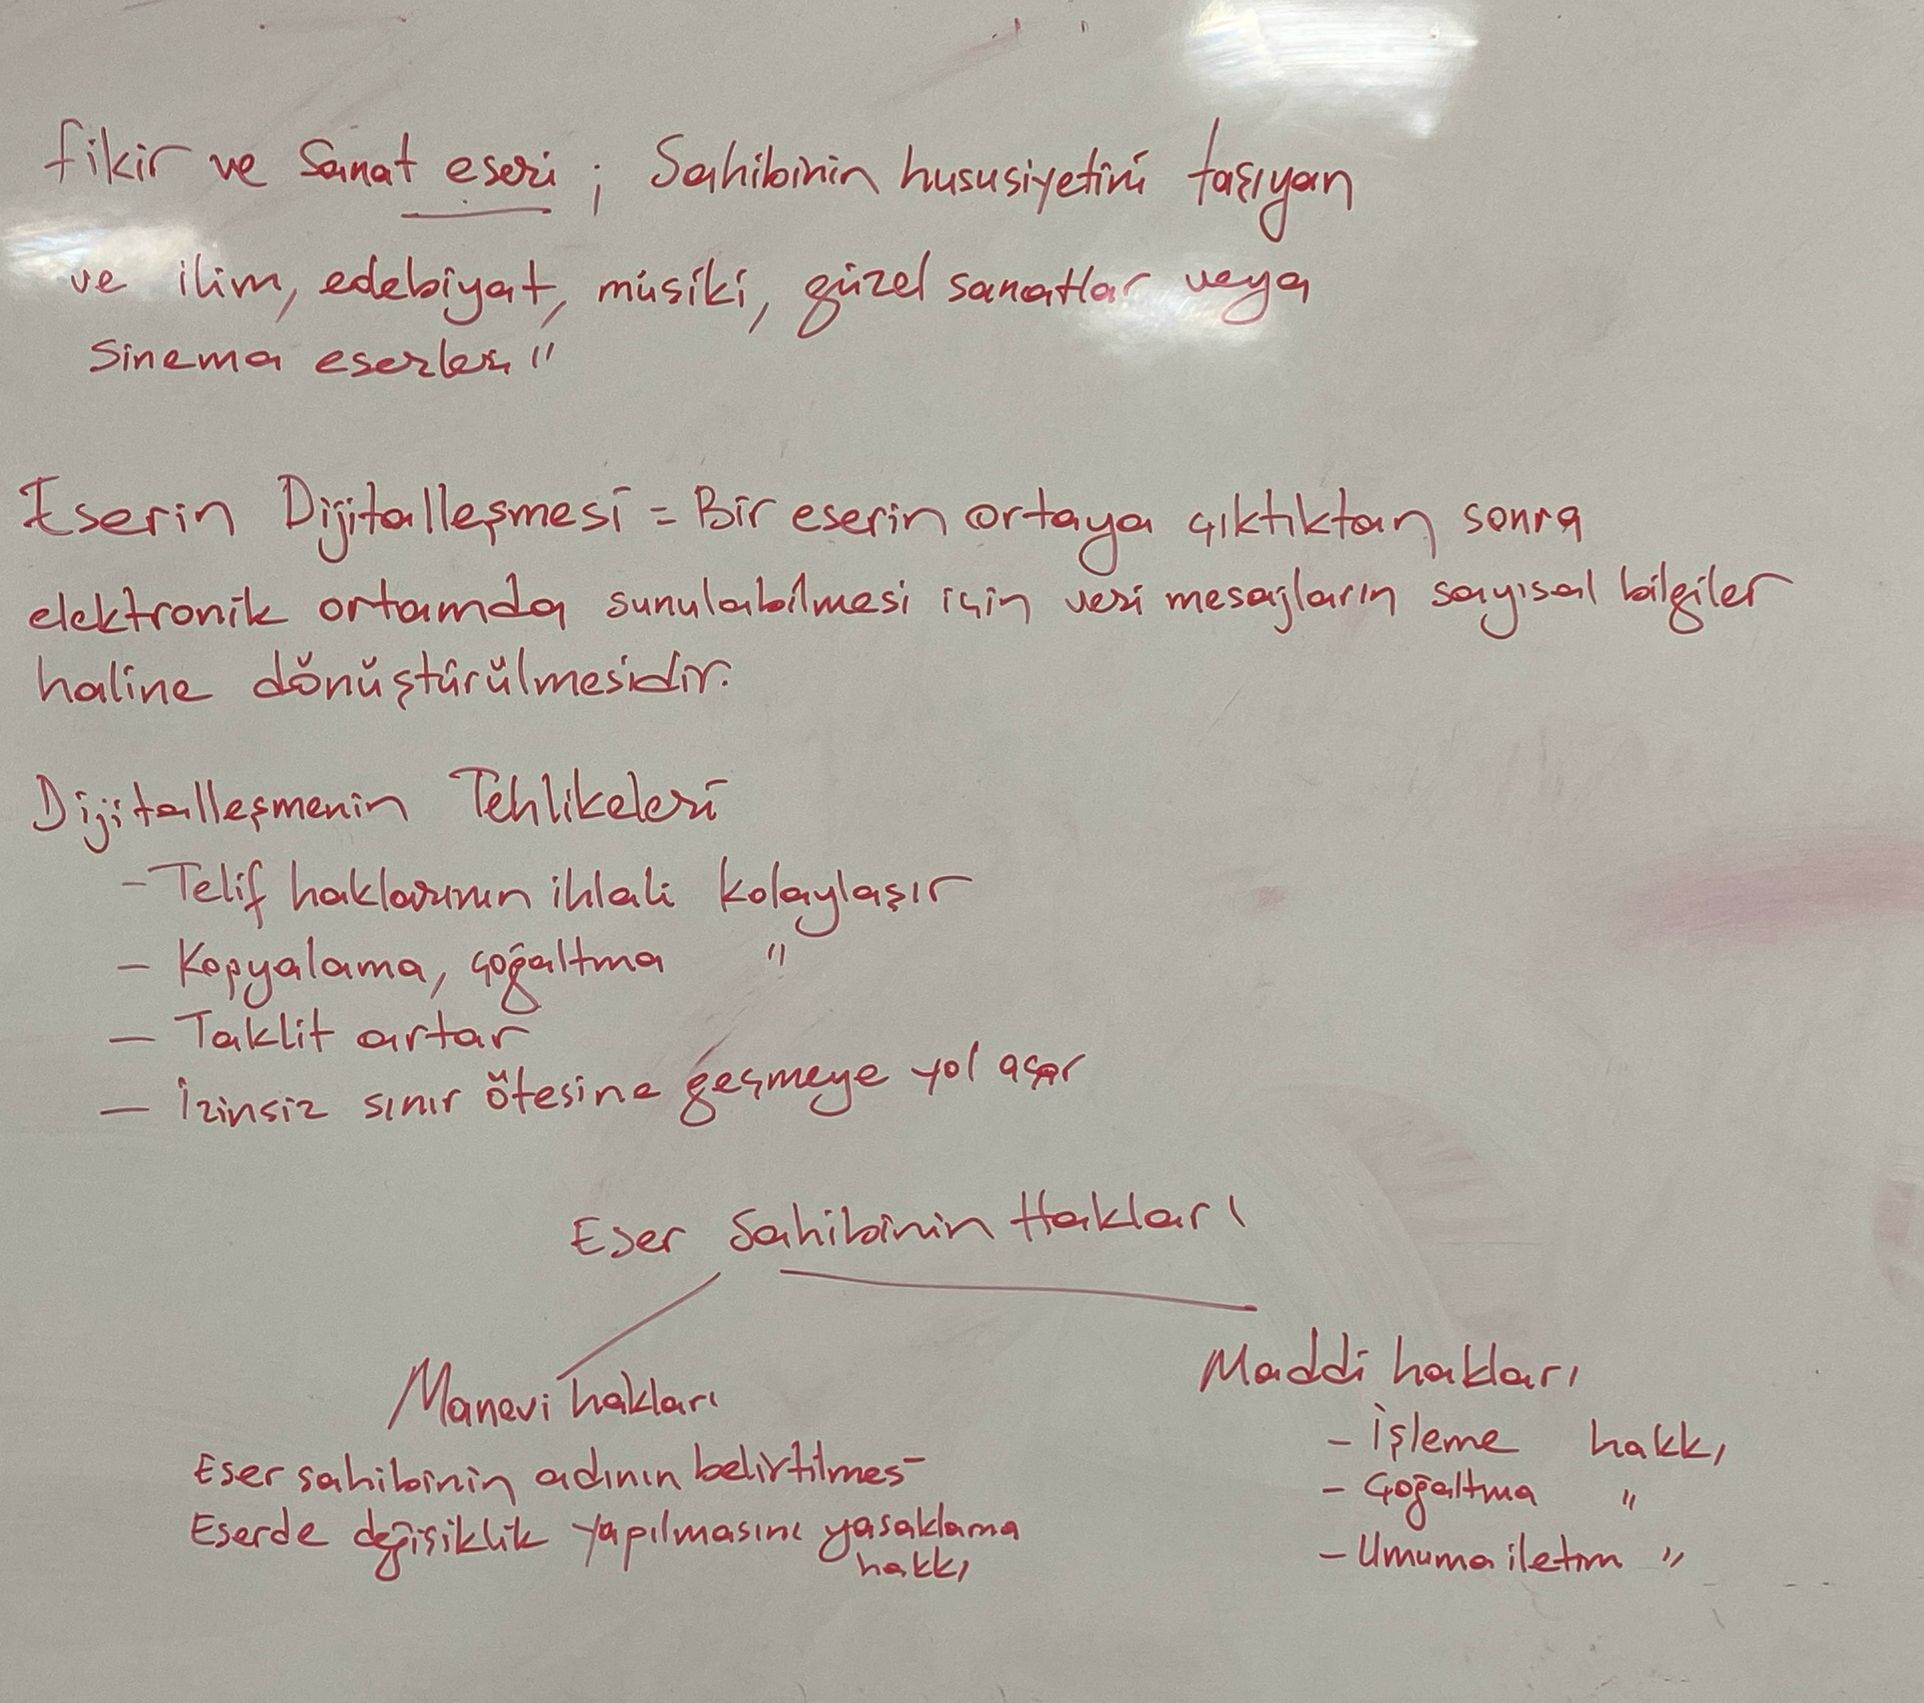 fikir ve Sanat eseri ; Sahibinin hususiyetini taşıyan
ve ilim, edebiyat, müsiki, güzel sanatlar veya
Sinema eserleri "
Eserin Dijitalleşmesi = Bir eserin ortaya çıktıktan sonra
elektronik ortamda sunulabilmesi için veri mesajların sayısal bilgiler
haline dönüştürülmesidir.
Dijitalleşmenin Tehlikeleri
- Telif haklarının ihlali kolaylaşır
- Kopyalama, çoğaltma "
- Taklit artar
- İzinsiz sınır ötesine geçmeye yol açar
Eser Sahibinin Hakları
Manevi hakları
Maddi hakları
Eser sahibinin adının belirtilmesi
Eserde değişiklik yapılmasını yasaklama
hakkı
- İşleme hakkı
- Çoğaltma "
- Umuma iletim "